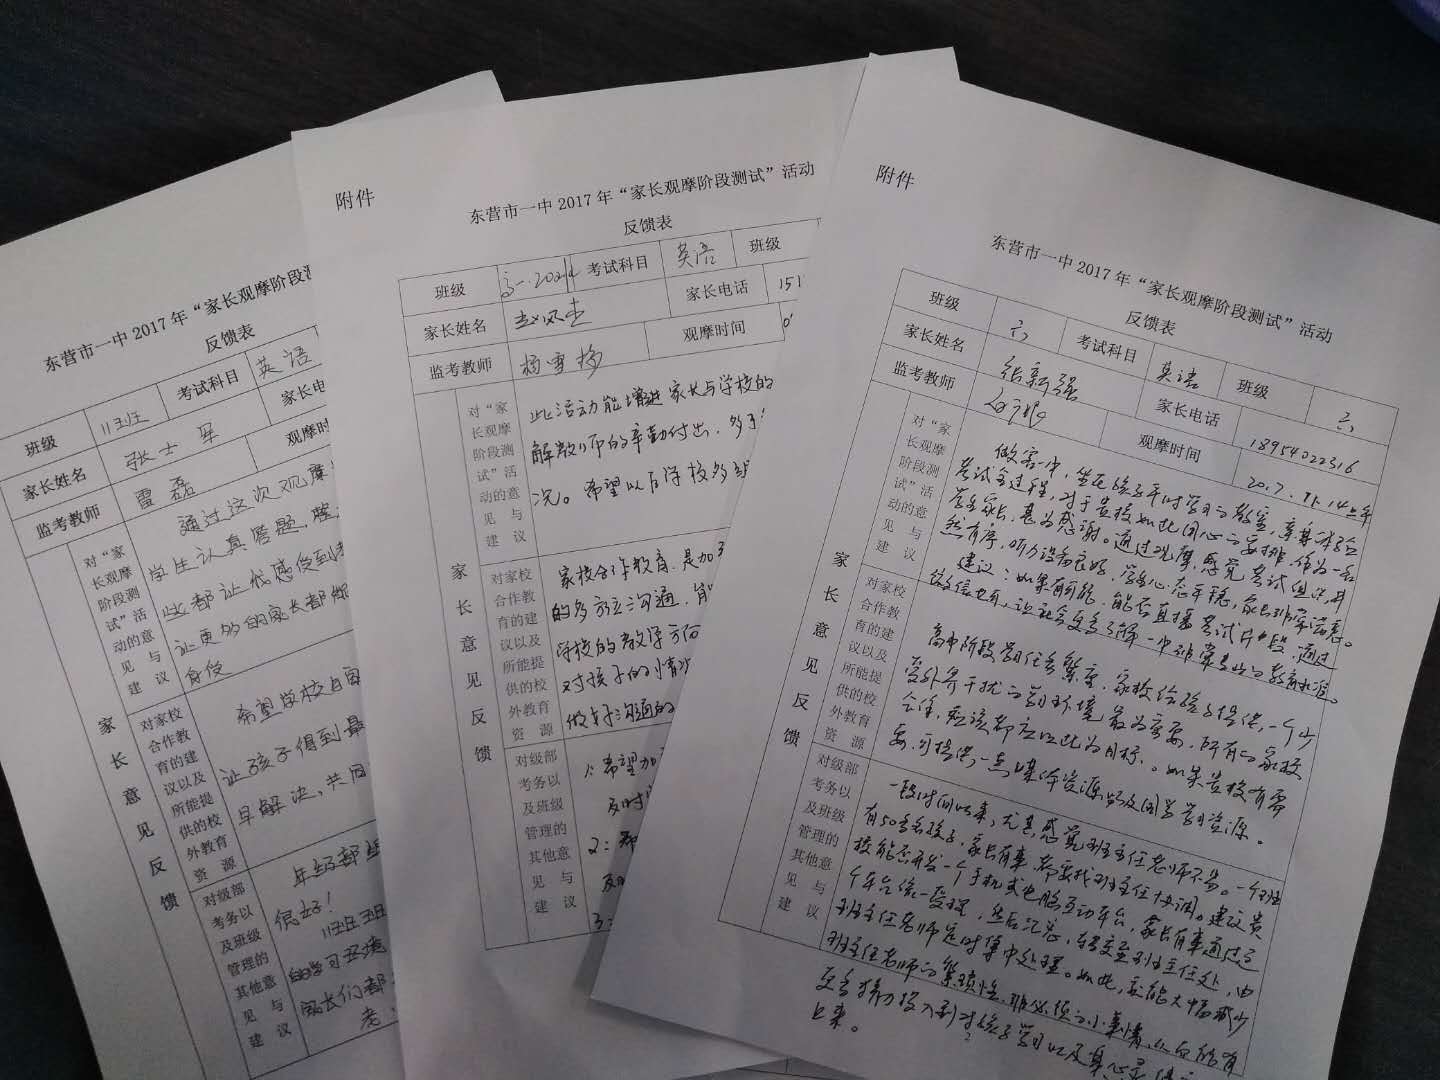 东营市一中2017年“家长观摩阶段测
反馈表
班级 11班 考试科目 英语
家长姓名 张士军 家长电
监考教师 雷磊 观摩时
家长意见反馈
对“家长观摩阶段测试”活动的意见与建议
通过这次观摩
学生认真答题,
此都让我感受到
让更多的家长都
对家校合作教育的建议以及所能提供的校外教育资源
希望学校
让孩子得到最
早解决、共同
对级部考务以及班级管理的其他意见与建议
年级部
很好!
的学习环境
家长们都
附件
东营市一中2017年“家长观摩阶段测试”活动
反馈表
班级 高一.2021 考试科目 英语 班级
家长姓名 赵风杰 家长电话 151
监考教师 杨雪梅 观摩时间
家长意见反馈
对“家长观摩阶段测试”活动的意见与建议
此活动能增进家长与学校的
解教师的辛勤付出,
况。希望以后学校多
对家校合作教育的建议以及所能提供的校外教育资源
家校合作教育,是加
的多方位沟通,
学校的教学方向
对孩子的情况
做好沟通的
对级部考务以及班级管理的其他意见与建议
1:希望加
及时
2:希
及时
3:
附件
东营市一中2017年“家长观摩阶段测试”活动
反馈表
班级 六 考试科目 英语 班级 六
家长姓名 张新强 家长电话 18954022316
监考教师 观摩时间 2017.11.14上午
家长意见反馈
对“家长观摩阶段测试”活动的意见与建议
做客一中,坐在孩子平时学习的教室,亲身体验
考试全过程,对于贵校如此用心的安排,作为一名
学生家长,甚为感谢。通过观摩,感觉考试组织井
然有序,听力设备良好,学生心态平稳,家长非常满意。
建议:如果有可能,能否直播考试片段,通过
微信也可,让社会更多了解一中非常专业的教育水准。
对家校合作教育的建议以及所能提供的校外教育资源
高中阶段学习任务繁重,家校给孩子提供一个少
受外界干扰的学习环境最为重要,所有的家校
合作,应该都应以此为目标。如果贵校有需
要,可提供一点媒体资源以及国学学习资源。
对级部考务以及班级管理的其他意见与建议
一段时间以来,尤其感觉班主任老师不易。一个班
有50多名孩子,家长有事,都要找班主任协调。建议贵
校能否开发一个手机或电脑互动平台,家长有事通过这
个平台统一受理,然后汇总,转交至班主任处,由
班主任老师定时集中处理。如此,或能大幅减少
班主任老师的繁琐性、非必须的小事情,从而能有
更多精力投入到对孩子学习以及身心
上来。